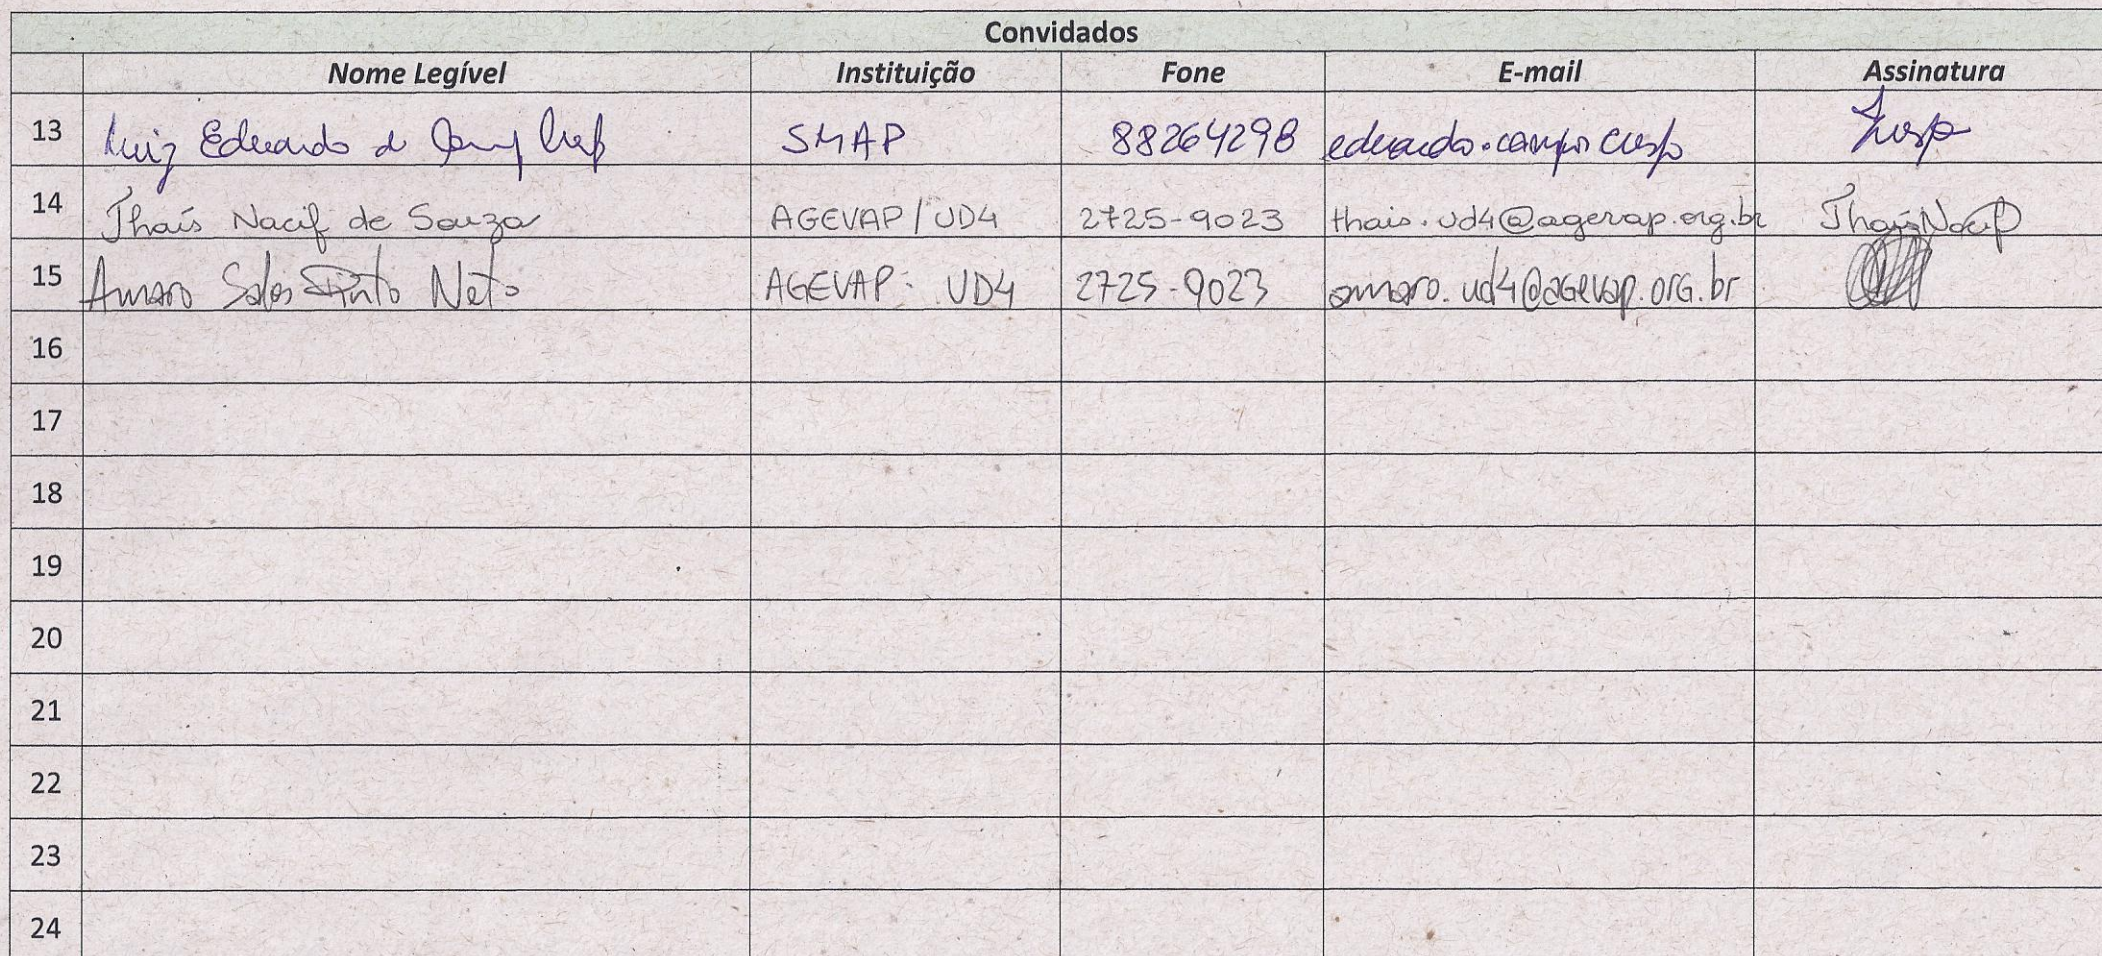 Convidados
Nome Legível Instituição Fone E-mail Assinatura
13 Luiz Eduardo de SMAP 88264298 eduardo.campos crespo
14 Thaís Nacif de Souza AGEVAP/UD4 2725-9023 thais.ud4@agevap.org.br Thaís Nacif
15 Amaro Sales Pinto Neto AGEVAP- UD4 2725-9023 amaro.ud4@agevap.org.br
16
17
18
19
20
21
22
23
24